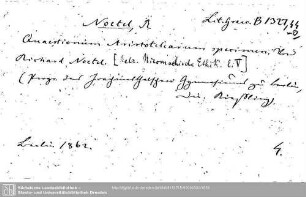 Noetel, R
Lit. Graec. B 1327,44
Quaestionum Aristotelearum specimen. Von
Richard Noetel. [Betr. Nicomachische Ethik L. V]
(Progr. des Joachimsthalschen Gymnasiums zu Berlin,
Berlin 1862. 4.
Sächsische Landesbibliothek -
Staats- und Universitätsbibliothek Dresden